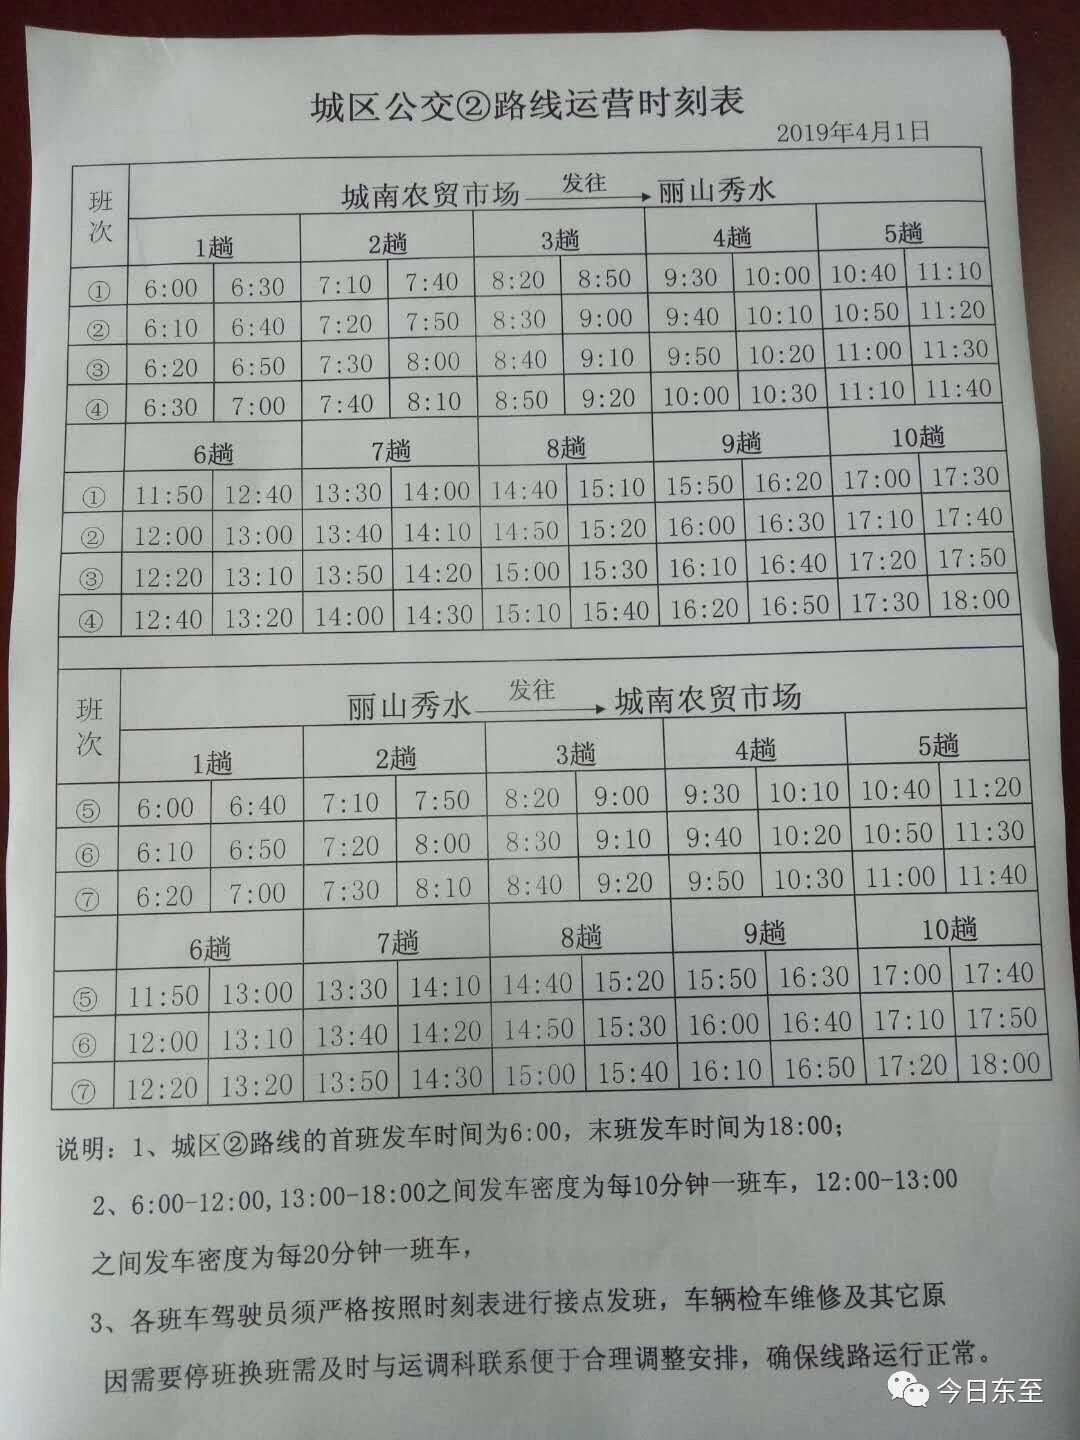 城区公交②路线运营时刻表
2019年4月1日
班次 城南农贸市场 发往 丽山秀水
1趟 2趟 3趟 4趟 5趟
① 6:00 6:30 7:10 7:40 8:20 8:50 9:30 10:00 10:40 11:10
② 6:10 6:40 7:20 7:50 8:30 9:00 9:40 10:10 10:50 11:20
③ 6:20 6:50 7:30 8:00 8:40 9:10 9:50 10:20 11:00 11:30
④ 6:30 7:00 7:40 8:10 8:50 9:20 10:00 10:30 11:10 11:40
6趟 7趟 8趟 9趟 10趟
① 11:50 12:40 13:30 14:00 14:40 15:10 15:50 16:20 17:00 17:30
② 12:00 13:00 13:40 14:10 14:50 15:20 16:00 16:30 17:10 17:40
③ 12:20 13:10 13:50 14:20 15:00 15:30 16:10 16:40 17:20 17:50
④ 12:40 13:20 14:00 14:30 15:10 15:40 16:20 16:50 17:30 18:00
班次 丽山秀水 发往 城南农贸市场
1趟 2趟 3趟 4趟 5趟
⑤ 6:00 6:40 7:10 7:50 8:20 9:00 9:30 10:10 10:40 11:20
⑥ 6:10 6:50 7:20 8:00 8:30 9:10 9:40 10:20 10:50 11:30
⑦ 6:20 7:00 7:30 8:10 8:40 9:20 9:50 10:30 11:00 11:40
6趟 7趟 8趟 9趟 10趟
⑤ 11:50 13:00 13:30 14:10 14:40 15:20 15:50 16:30 17:00 17:40
⑥ 12:00 13:10 13:40 14:20 14:50 15:30 16:00 16:40 17:10 17:50
⑦ 12:20 13:20 13:50 14:30 15:00 15:40 16:10 16:50 17:20 18:00
说明：1、城区②路线的首班发车时间为6:00，末班发车时间为18:00；
2、6:00-12:00,13:00-18:00之间发车密度为每10分钟一班车，12:00-13:00
之间发车密度为每20分钟一班车，
3、各班车驾驶员须严格按照时刻表进行接点发班，车辆检车维修及其它原
因需要停班换班需及时与运调科联系便于合理调整安排，确保线路运行正常。
今日东至